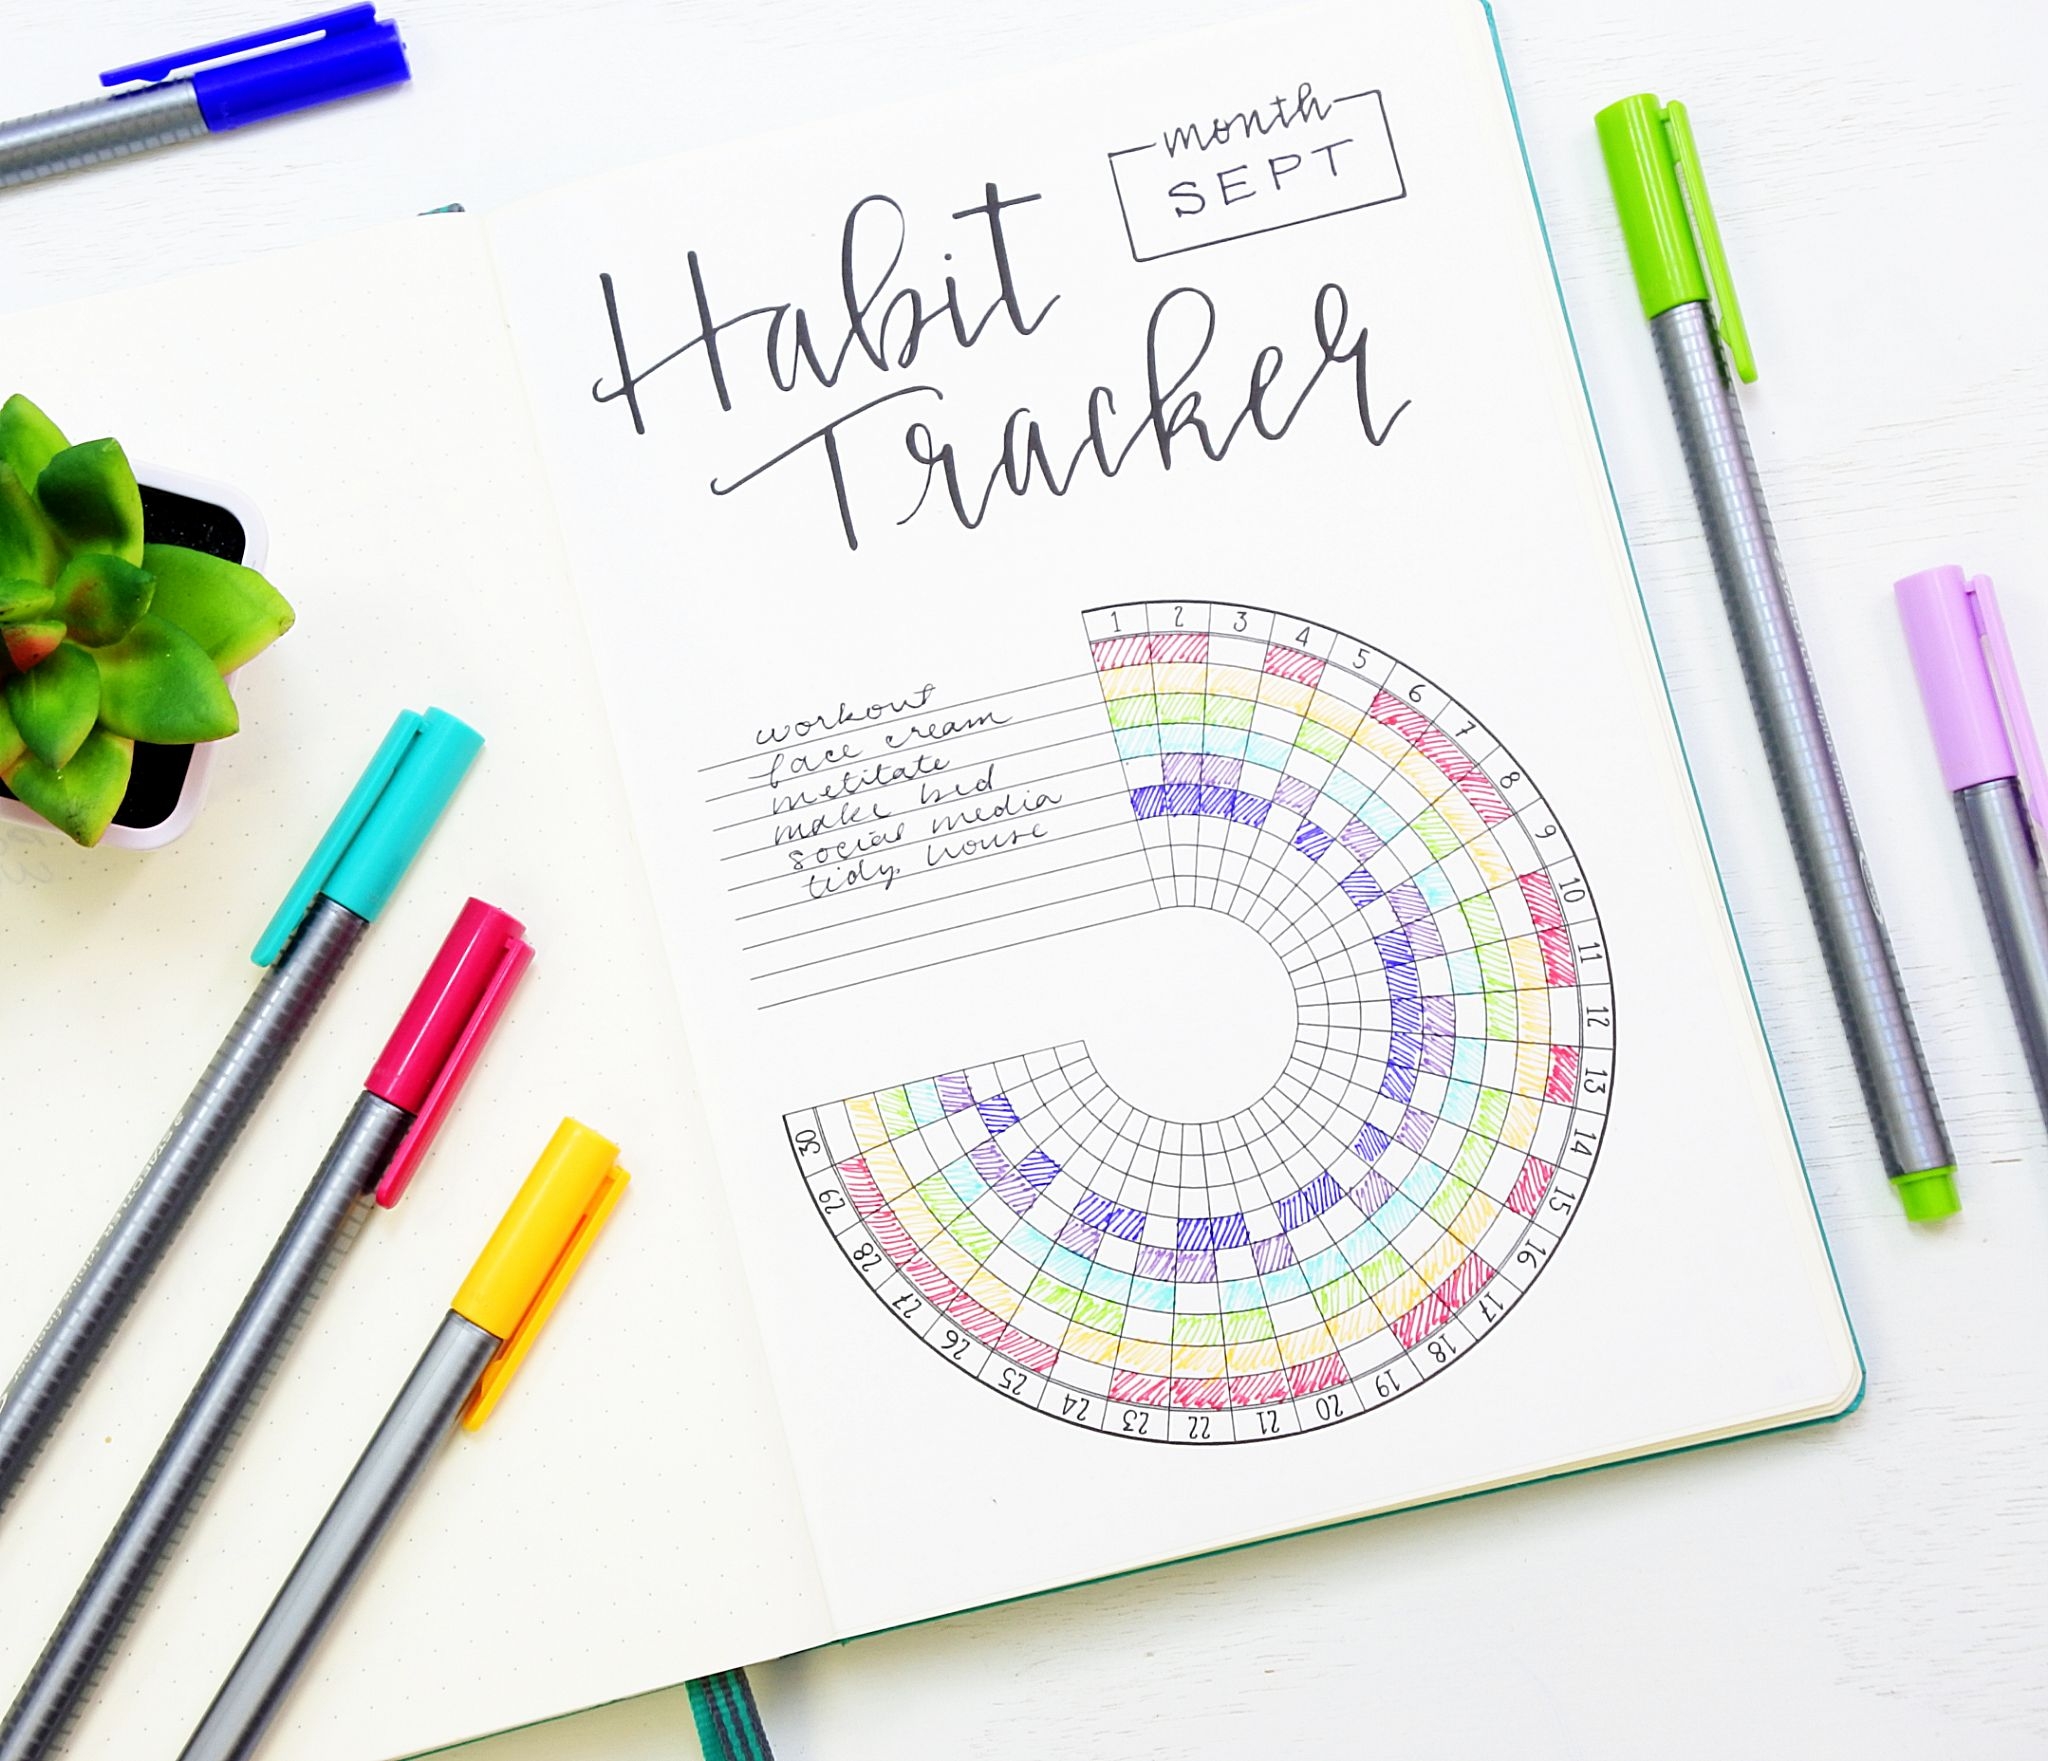 month
SEPT
Habit
Tracker
workout
face cream
metitate
make bed
social media
tidy house
1 2 3 4 5 6 7 8 9 10 11 12 13 14 15 16 17 18 19 20 21 22 23 24 25 26 27 28 29 30
STAEDTLER triplus fineliner